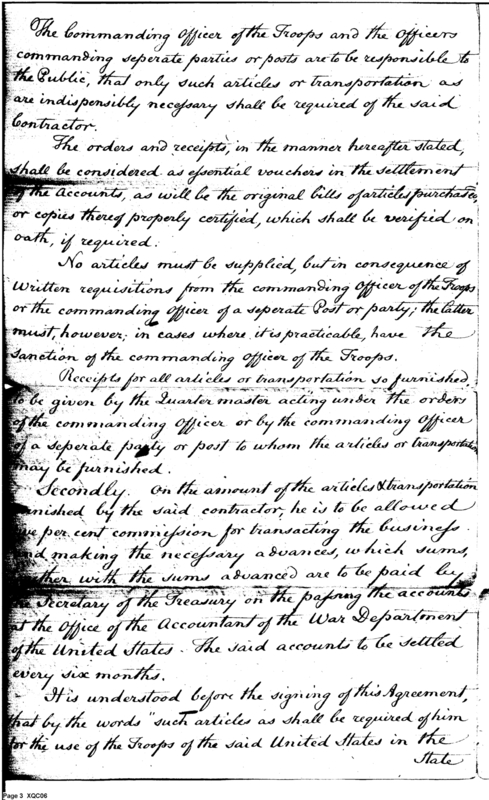 The Commanding Officer of the Troops and the Officers
commanding seperate parties or posts are to be responsible to
the Public, that only such articles or transportation as
are indispensibly necessary shall be required of the said
Contractor.
The orders and receipts, in the manner hereafter stated,
shall be considered as essential vouchers in the settlement
of the Accounts, as will be the original bills of articles purchased
or copies thereof properly certified, which shall be verified on
oath, if required.
No articles must be supplied, but in consequence of
Written requisitions from the commanding Officer of the Troops
or the commanding Officer of a seperate Post or party; the latter
must, however, in cases where it is practicable, have the
Sanction of the commanding Officer of the Troops.
Receipts for all articles or transportation so furnished
to be given by the Quarter master acting under the orders
of the commanding Officer or by the commanding Officer
of a seperate party or post to whom the articles or transportation
may be furnished.
Secondly. On the amount of the articles & transportation
furnished by the said contractor, he is to be allowed
per cent commission for transacting the business
and making the necessary advances, which sums,
together with the sums advanced are to be paid by
the Secretary of the Treasury on the passing the accounts
at the Office of the Accountant of the War Department
of the United States. The said accounts to be settled
every six months.
It is understood before the signing of this Agreement,
that by the words "such articles as shall be required of him
for the use of the Troops of the said United States in the
State
Page 3 XQC06